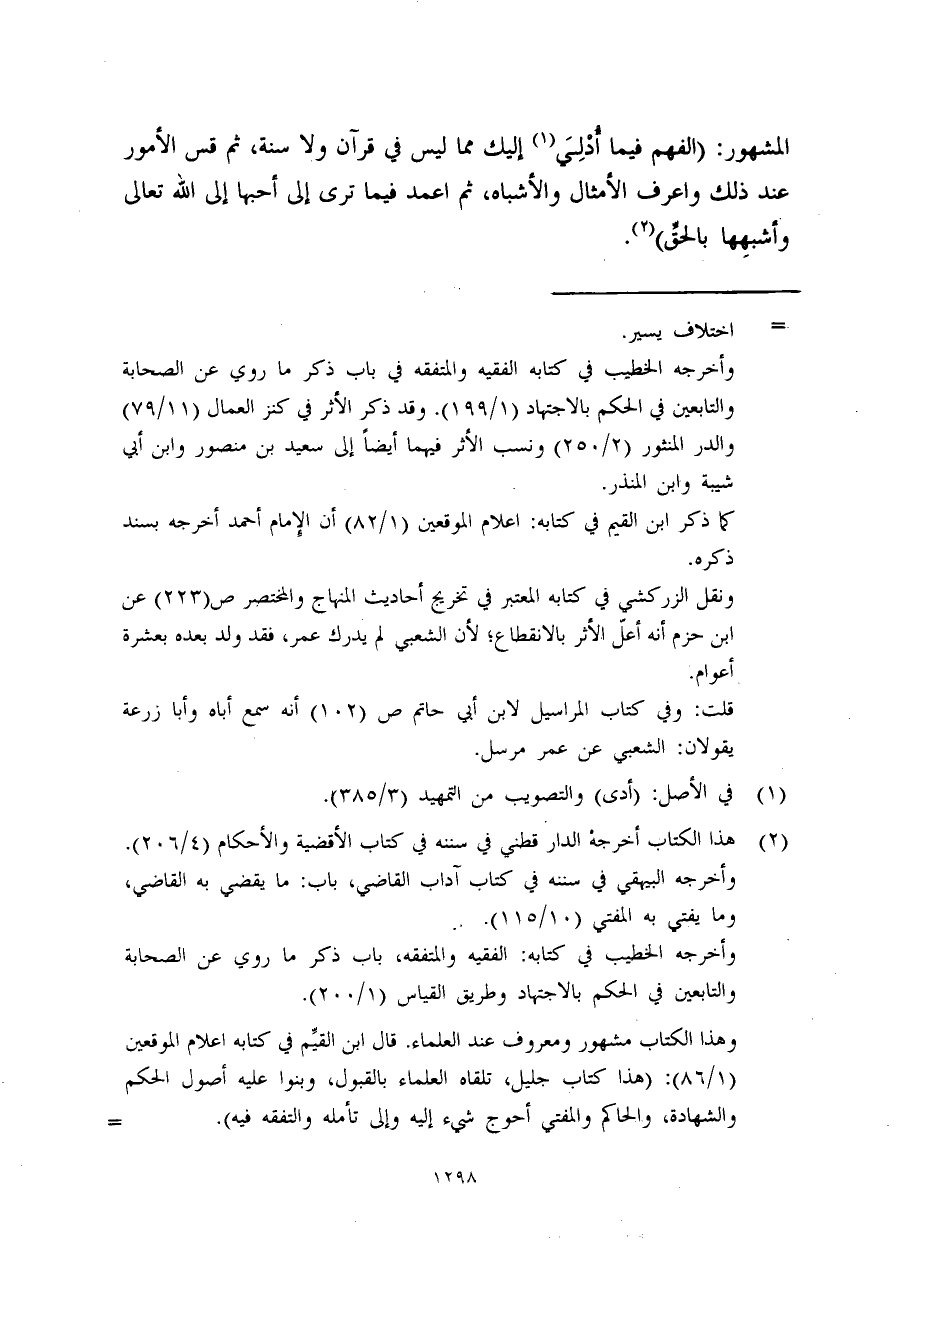 المشهور: (الفهم فيما أُدْلِيَ(١) إليك مما ليس في قرآن ولا سنة، ثم قس الأمور
عند ذلك واعرف الأمثال والأشباه، ثم اعمد فيما ترى إلى أحبها إلى الله تعالى
وأشبهها بالحقِّ)(٢).
= اختلاف يسير.
وأخرجه الخطيب في كتابه الفقيه والمتفقه في باب ذكر ما روي عن الصحابة
والتابعين في الحكم بالاجتهاد (١/١٩٩). وقد ذكر الأثر في كنز العمال (٧٩/١١)
والدر المنثور (٢٥٠/٢) ونسب الأثر فيهما أيضاً إلى سعيد بن منصور وابن أبي
شيبة وابن المنذر.
كما ذكر ابن القيم في كتابه: اعلام الموقعين (٨٢/١) أن الإمام أحمد أخرجه بسند
ذكره.
ونقل الزركشي في كتابه المعتبر في تخريج أحاديث المنهاج والمختصر ص(٢٢٣) عن
ابن حزم أنه أعلّ الأثر بالانقطاع؛ لأن الشعبي لم يدرك عمر، فقد ولد بعده بعشرة
أعوام.
قلت: وفي كتاب المراسيل لابن أبي حاتم ص (١٠٢) أنه سمع أباه وأبا زرعة
يقولان: الشعبي عن عمر مرسل.
(١) في الأصل: (أدى) والتصويب من التمهيد (٣٨٥/٣).
(٢) هذا الكتاب أخرجهُ الدار قطني في سننه في كتاب الأقضية والأحكام (٢٠٦/٤).
وأخرجه البيهقي في سننه في كتاب آداب القاضي، باب: ما يقضي به القاضي،
وما يفتي به المفتي (١١٥/١٠).
وأخرجه الخطيب في كتابه: الفقيه والمتفقه، باب ذكر ما روي عن الصحابة
والتابعين في الحكم بالاجتهاد وطريق القياس (٢٠٠/١).
وهذا الكتاب مشهور ومعروف عند العلماء. قال ابن القيِّم في كتابه اعلام الموقعين
(٨٦/١): (هذا كتاب جليل، تلقاه العلماء بالقبول، وبنوا عليه أصول الحكم
والشهادة، والحاكم والمفتي أحوج شيء إليه وإلى تأمله والتفقه فيه). =
١٢٩٨